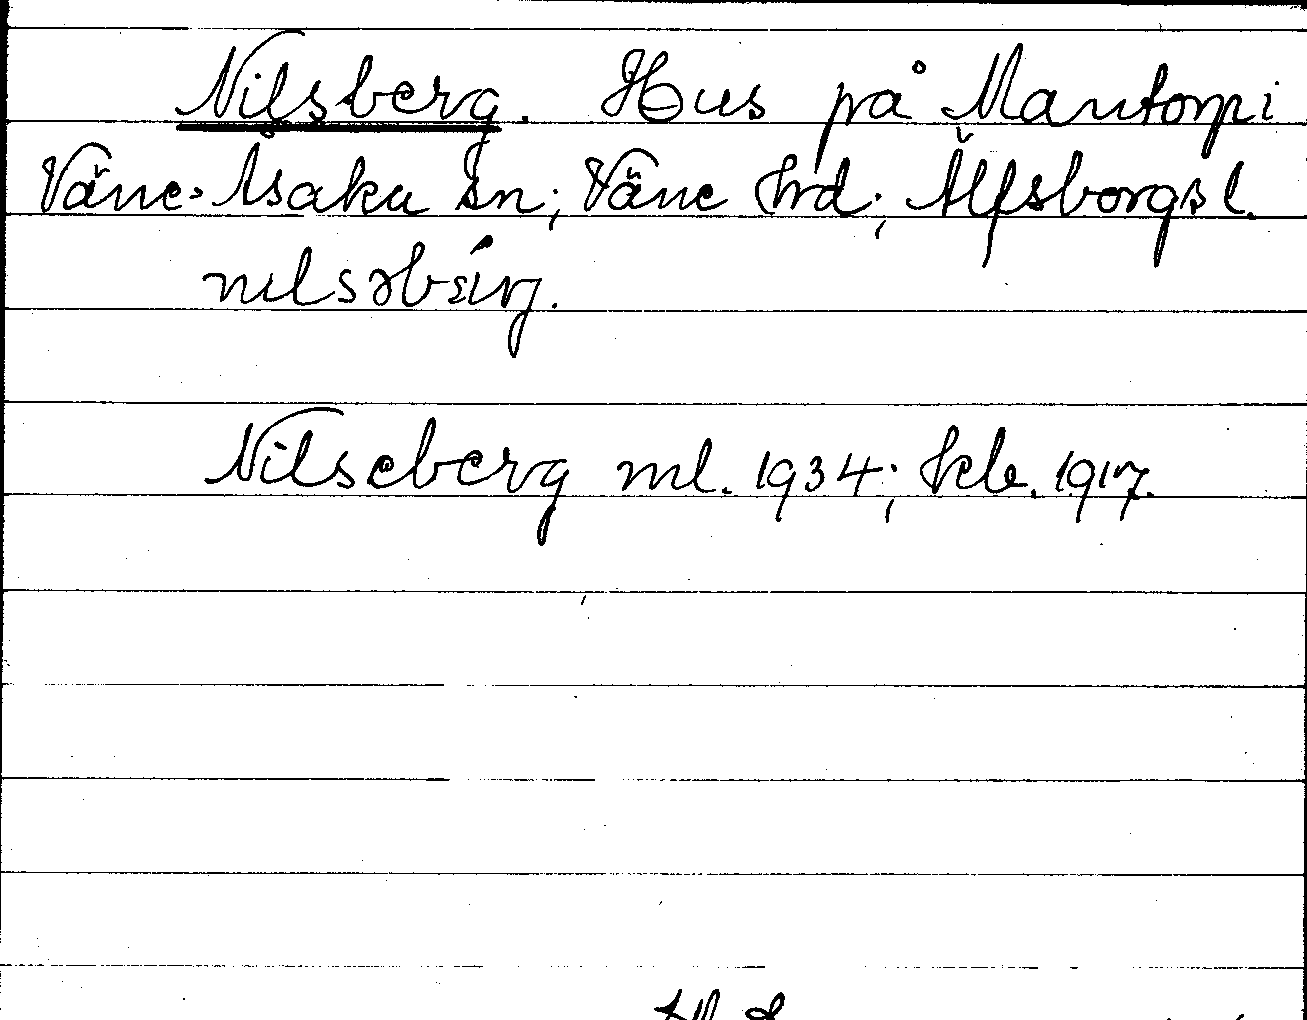 Nilsberg. Hus på Mantorp i
Väne-Åsaka sn; Väne hrd; Älfsborgs l.
nɪlsəbärj.
Nilseberg ml. 1934; kb. 1917.